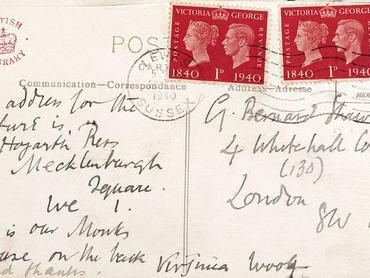 TISH
RARY
POST
VICTORIA GEORGE
POSTAGE
REVENUE
1840 1D 1940
VICTORIA GEORGE
POSTAGE
1840 1D 1940
LEWES
1940
SUSSEX
Communication–Correspondance
Address–Adresse
address for the
is,
Hogarth Press
Mecklenburgh
Square.
W C 1.
is our Monks
House on the back
thanks.
Virginia Woolf
G. Bernard Shaw
4 Whitehall Co
(130)
London
SW